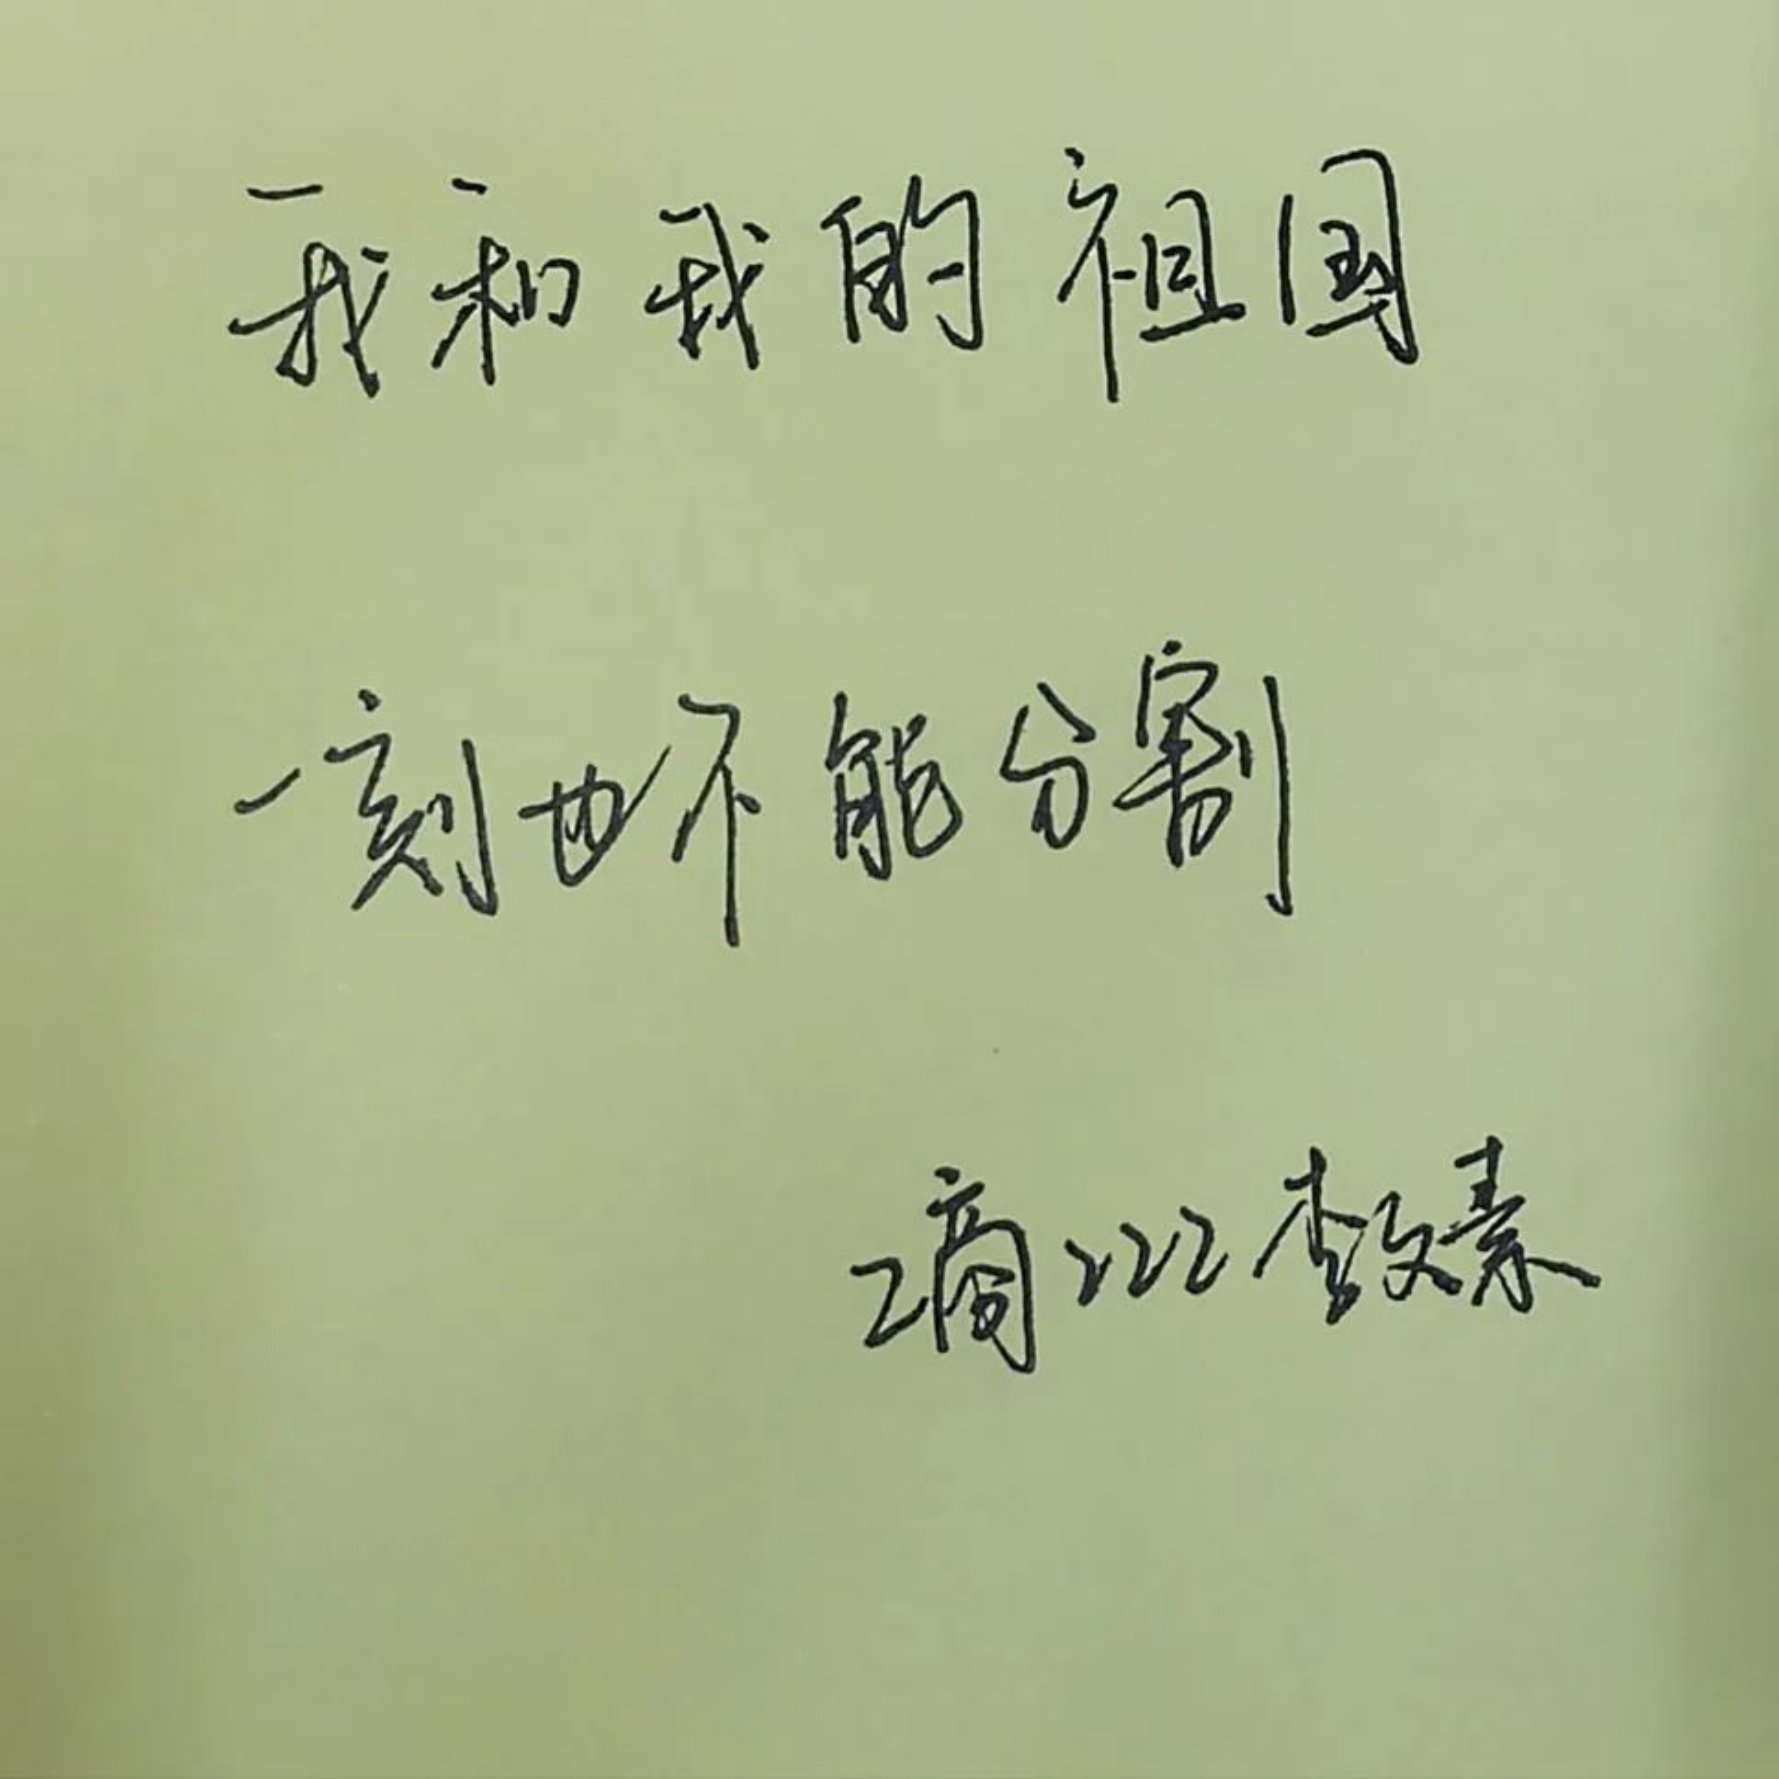 我和我的祖国
一刻也不能分割
商222李文素